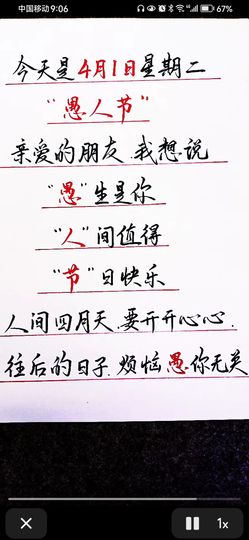 中国移动 9:06
67%
今天是4月1日星期二
“愚人节”
亲爱的朋友.我想说
“愚”生是你
“人”间值得
“节”日快乐
人间四月天.要开开心心.
往后的日子.烦恼愚你无关
1x